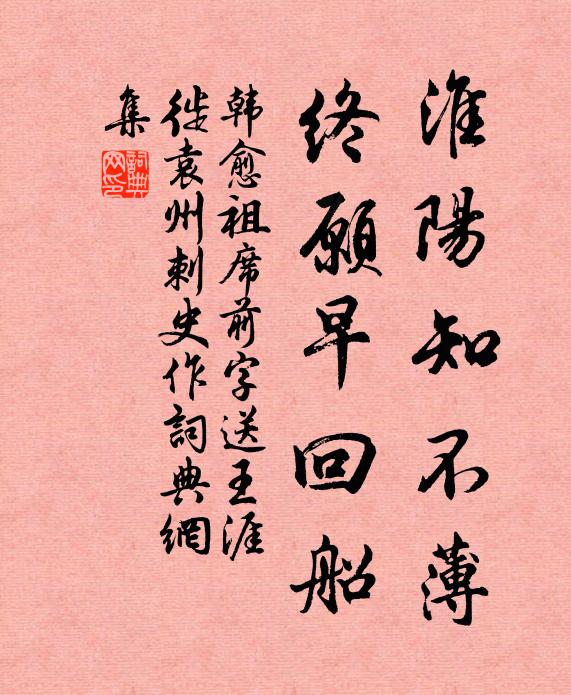 淮陽知不薄
終願早回船
韩愈祖席前字送王涯
徙袁州刺史作詞典網
集
詞典
网印